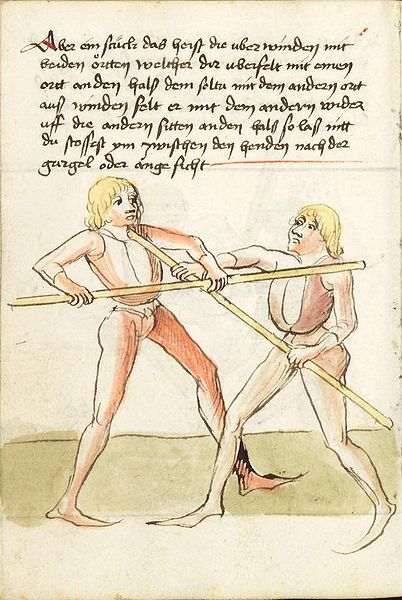 Aber ein stuck das heist die uber winden mit
beiden örtten welcher dir uberfelt mit einem
ortt an den hals dem soltu mit dem andern ort
aus winden felt er mit dem andern wider
uff die andern sitten an den hals so las nitt
du stossest ym zwischen den henden nach der
gurgel oder ange sicht